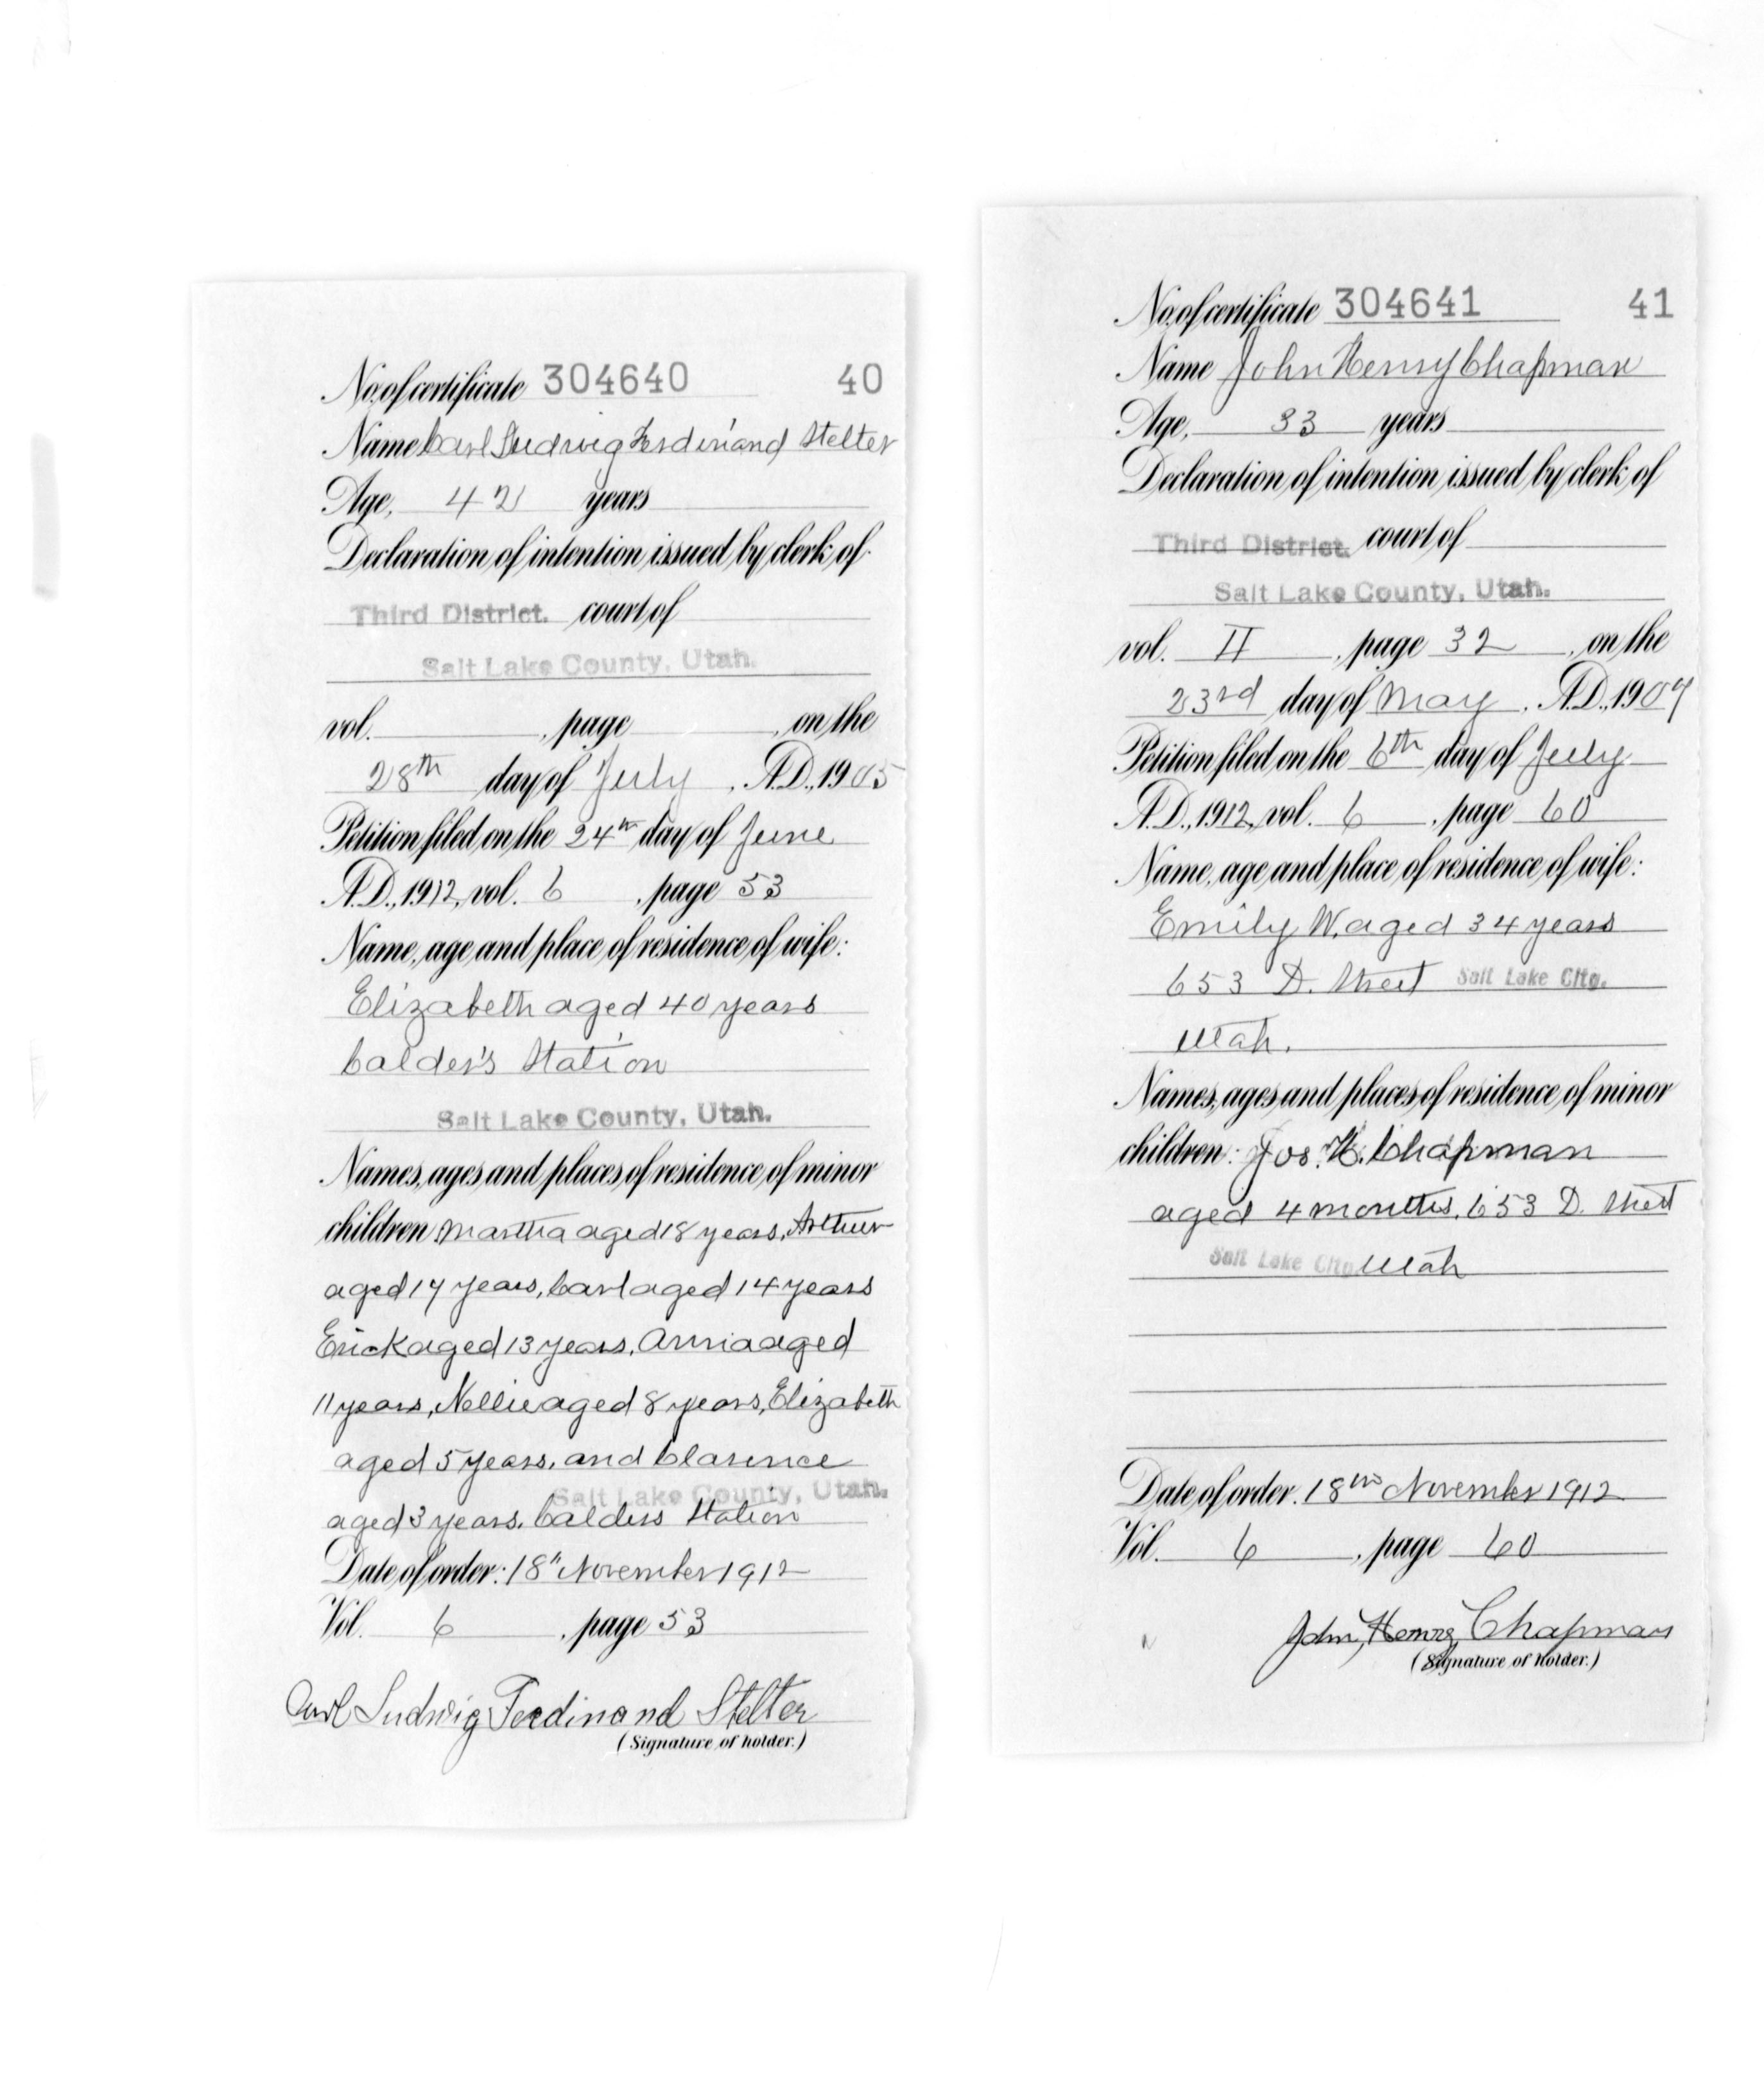 No. of certificate 304640 40
Name Carl Ludwig Ferdinand Stelter
Age, 42 years
Declaration of intention issued by clerk of
Third District. court of
Salt Lake County, Utah.
vol. , page , on the
28th day of July , A.D., 1905
Petition filed on the 24th day of June
A.D., 1912, vol. 6 , page 53
Name, age and place of residence of wife:
Elizabeth aged 40 years
Calder's Station
Salt Lake County, Utah.
Names, ages and places of residence of minor
children: Martha aged 18 years, Arthur
aged 17 years, Carl aged 14 years
Erick aged 13 years, Anna aged
11 years, Nellie aged 8 years, Elizabeth
aged 5 years, and Clarence
Salt Lake County, Utah.
aged 3 years. Calders Station
Date of order: 18" November 1912
Vol. 6 , page 53
Carl Ludwig Ferdinand Stelter
(Signature of holder.)
No. of certificate 304641 41
Name John Henry Chapman
Age, 33 years
Declaration of intention issued by clerk of
Third District. court of
Salt Lake County, Utah.
vol. II , page 32 , on the
23rd day of May , A.D., 1907
Petition filed on the 6th day of July
A.D., 1912, vol. 6 , page 60
Name, age and place of residence of wife:
Emily W. aged 34 years
653 D. Street Salt Lake City.
Utah.
Names, ages and places of residence of minor
children: Jos. H. Chapman
aged 4 months, 653 D. Street
Salt Lake City. Utah
Date of order: 18th November 1912
Vol. 6 , page 60
John Henry Chapman
(Signature of holder.)